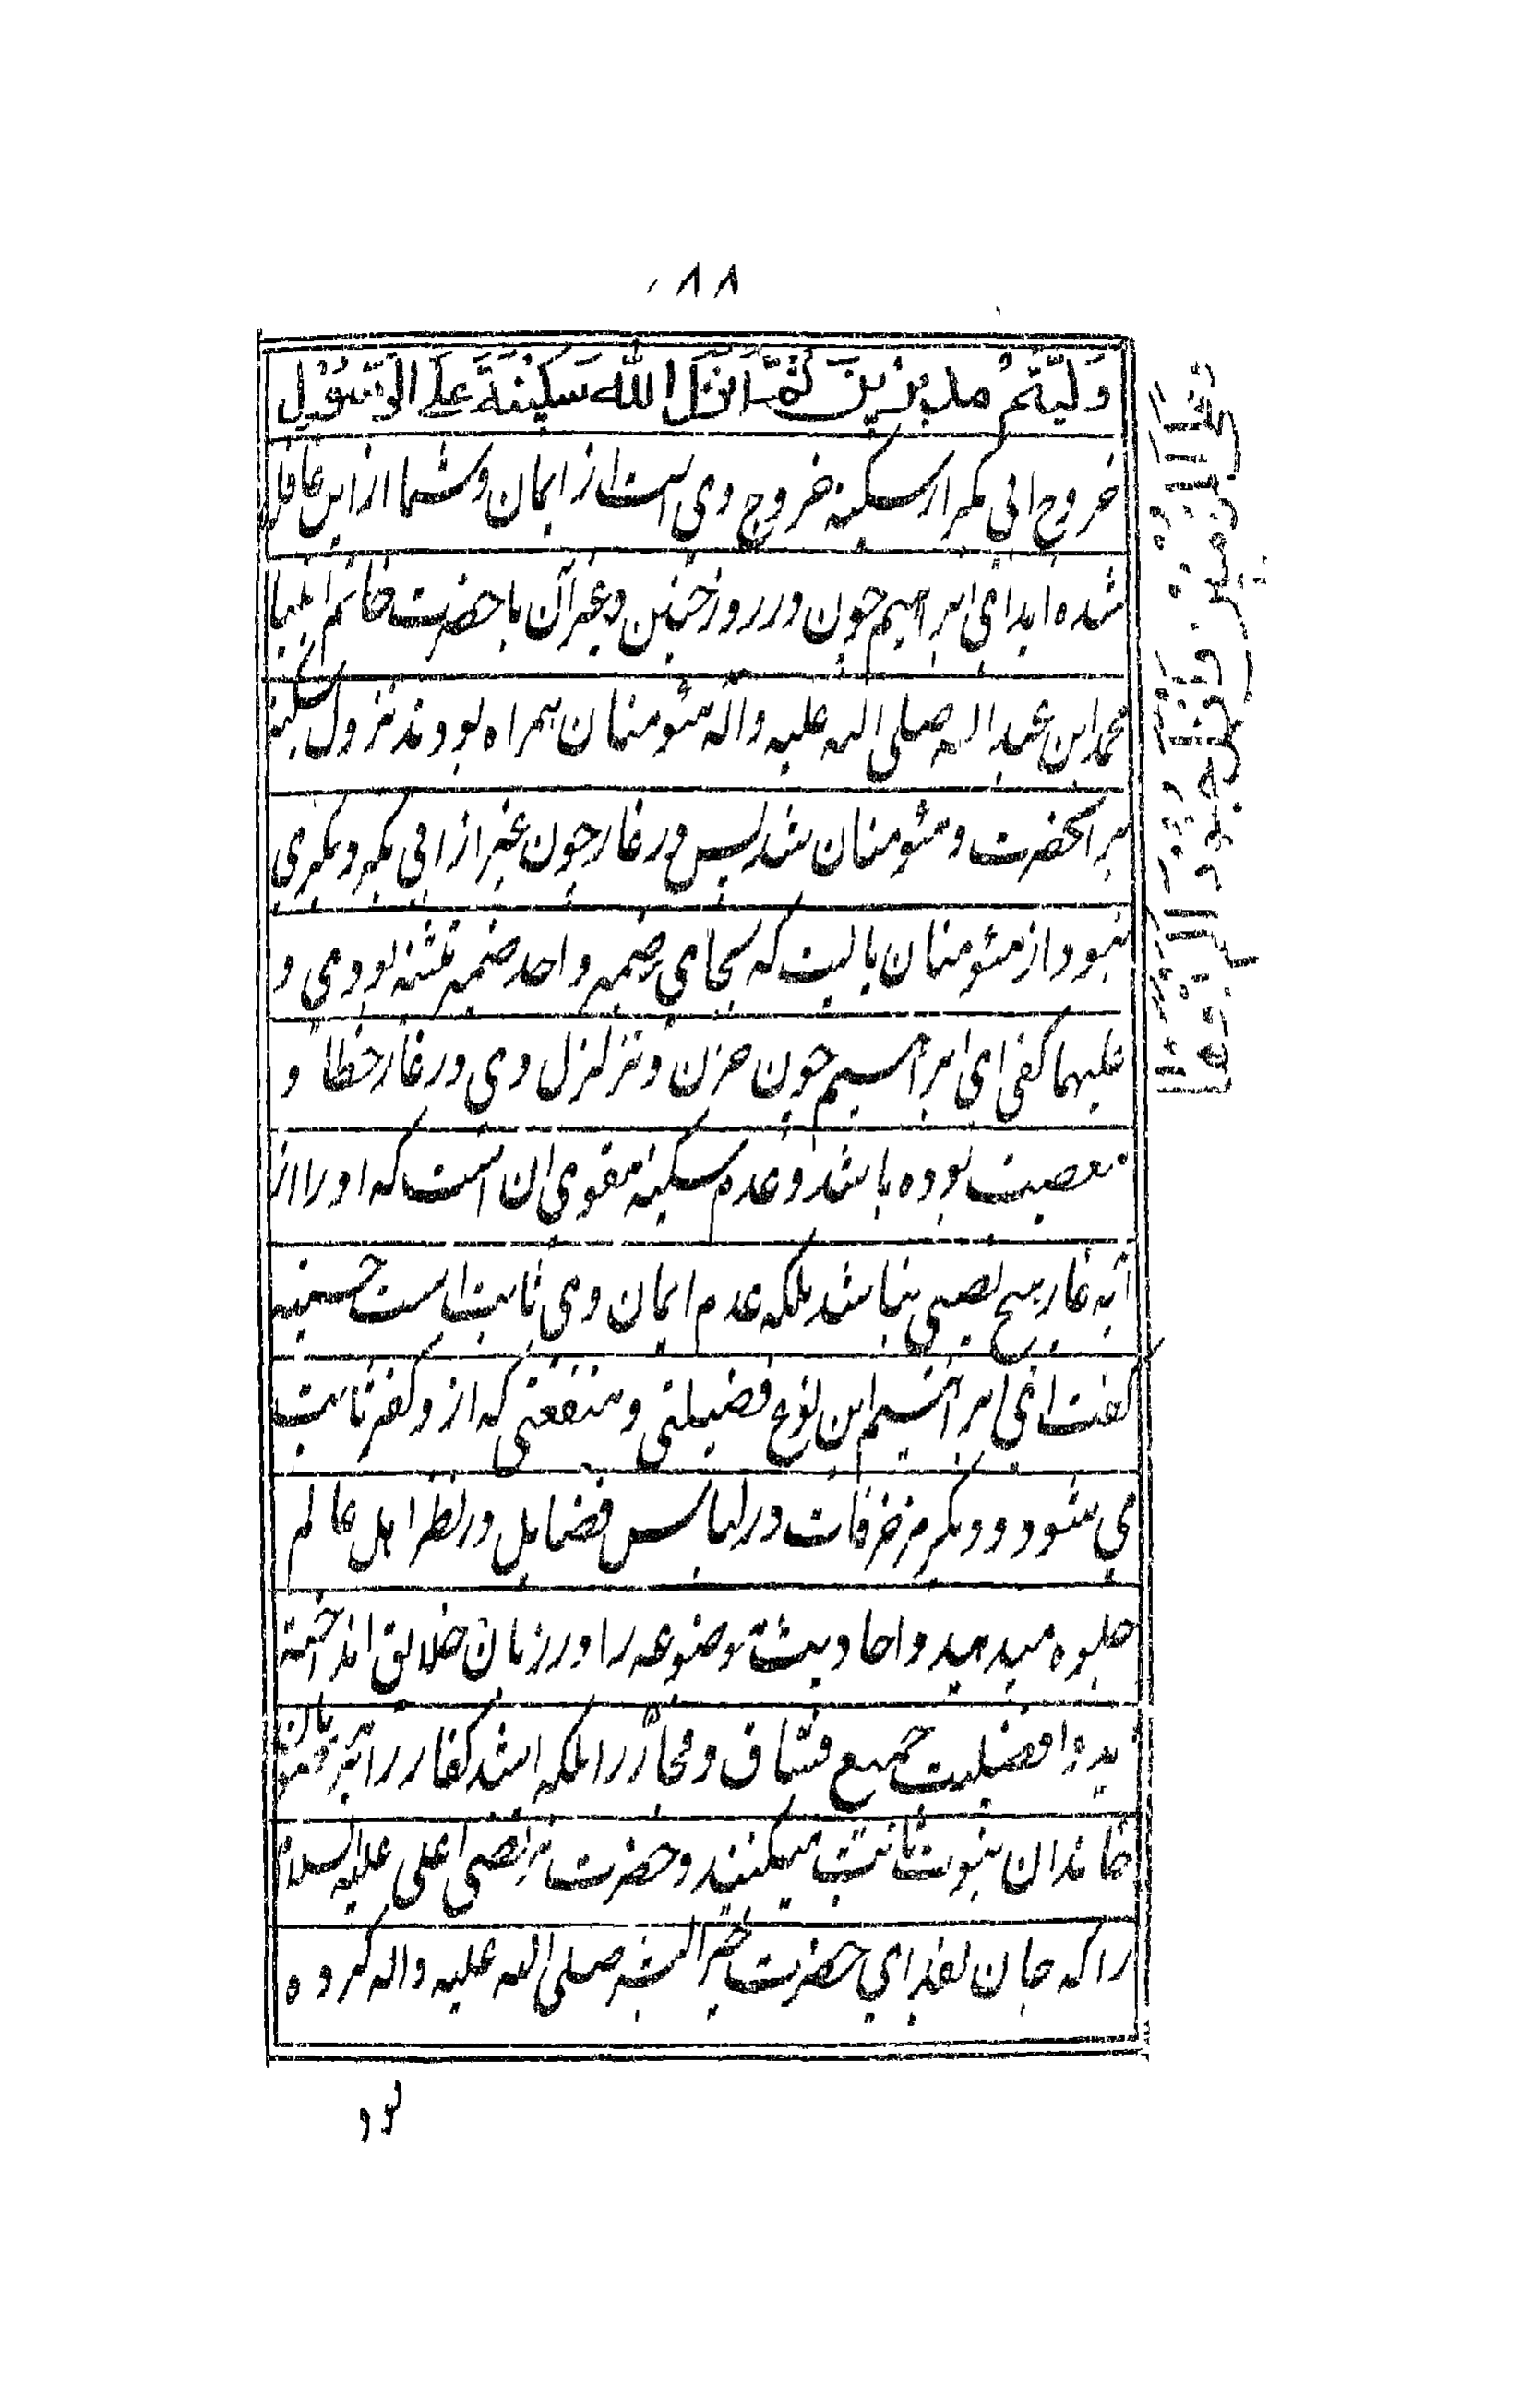 ۸۸
وَلَّيْتُمْ مدبِرِيْنَ ثُمَّ اَنْزَلَ اللّٰه سَكِيْنَةَ عَلَى الرَّسُوْلِ
خروج ابی بکر از سکینه خروج وی است از ایمان و شما از این غافل
شده اید ای ابراهیم چون در روز حنین و غیر آن با حضرت خاتم انبیا
محمد ابن عبد الله صلی الله علیه و آله مئومنان همراه بودند نزول سکینه
بر آنحضرت و مئومنان شد پس در غار چون غیر از ابی بکر و بکری
نبود از مئومنان بایست که بجای ضمیر واحد ضمیر تثنیه بودی و
علیهما گفتی ای ابراهیم چون حزن و تزلزل وی در غار خطا و
معصیت بوده باشد و عدم سکینه مقوی ان است که او را از
آیه غار هیچ نصیبی نباشد بلکه عدم ایمان وی ثابت است حسنیه
گفت ای ابراهیم این نوع فضیلتی و منقبتی که از و کفر ثابت
می شود و دیگر مزخرفات در لباس فضایل در نظر اهل عالم
جلوه میدهید و احادیث موضوعه را در زبان خلایق انداخته
اید و افضلیت جمیع فساق و فجار را بلکه اشد کفار را بر
خاندان نبوت ثابت میکنید و حضرت مرتضی علی علیه السلام
را که جان بفدای حضرت خیر البشر صلی الله علیه و اله کرده
بود